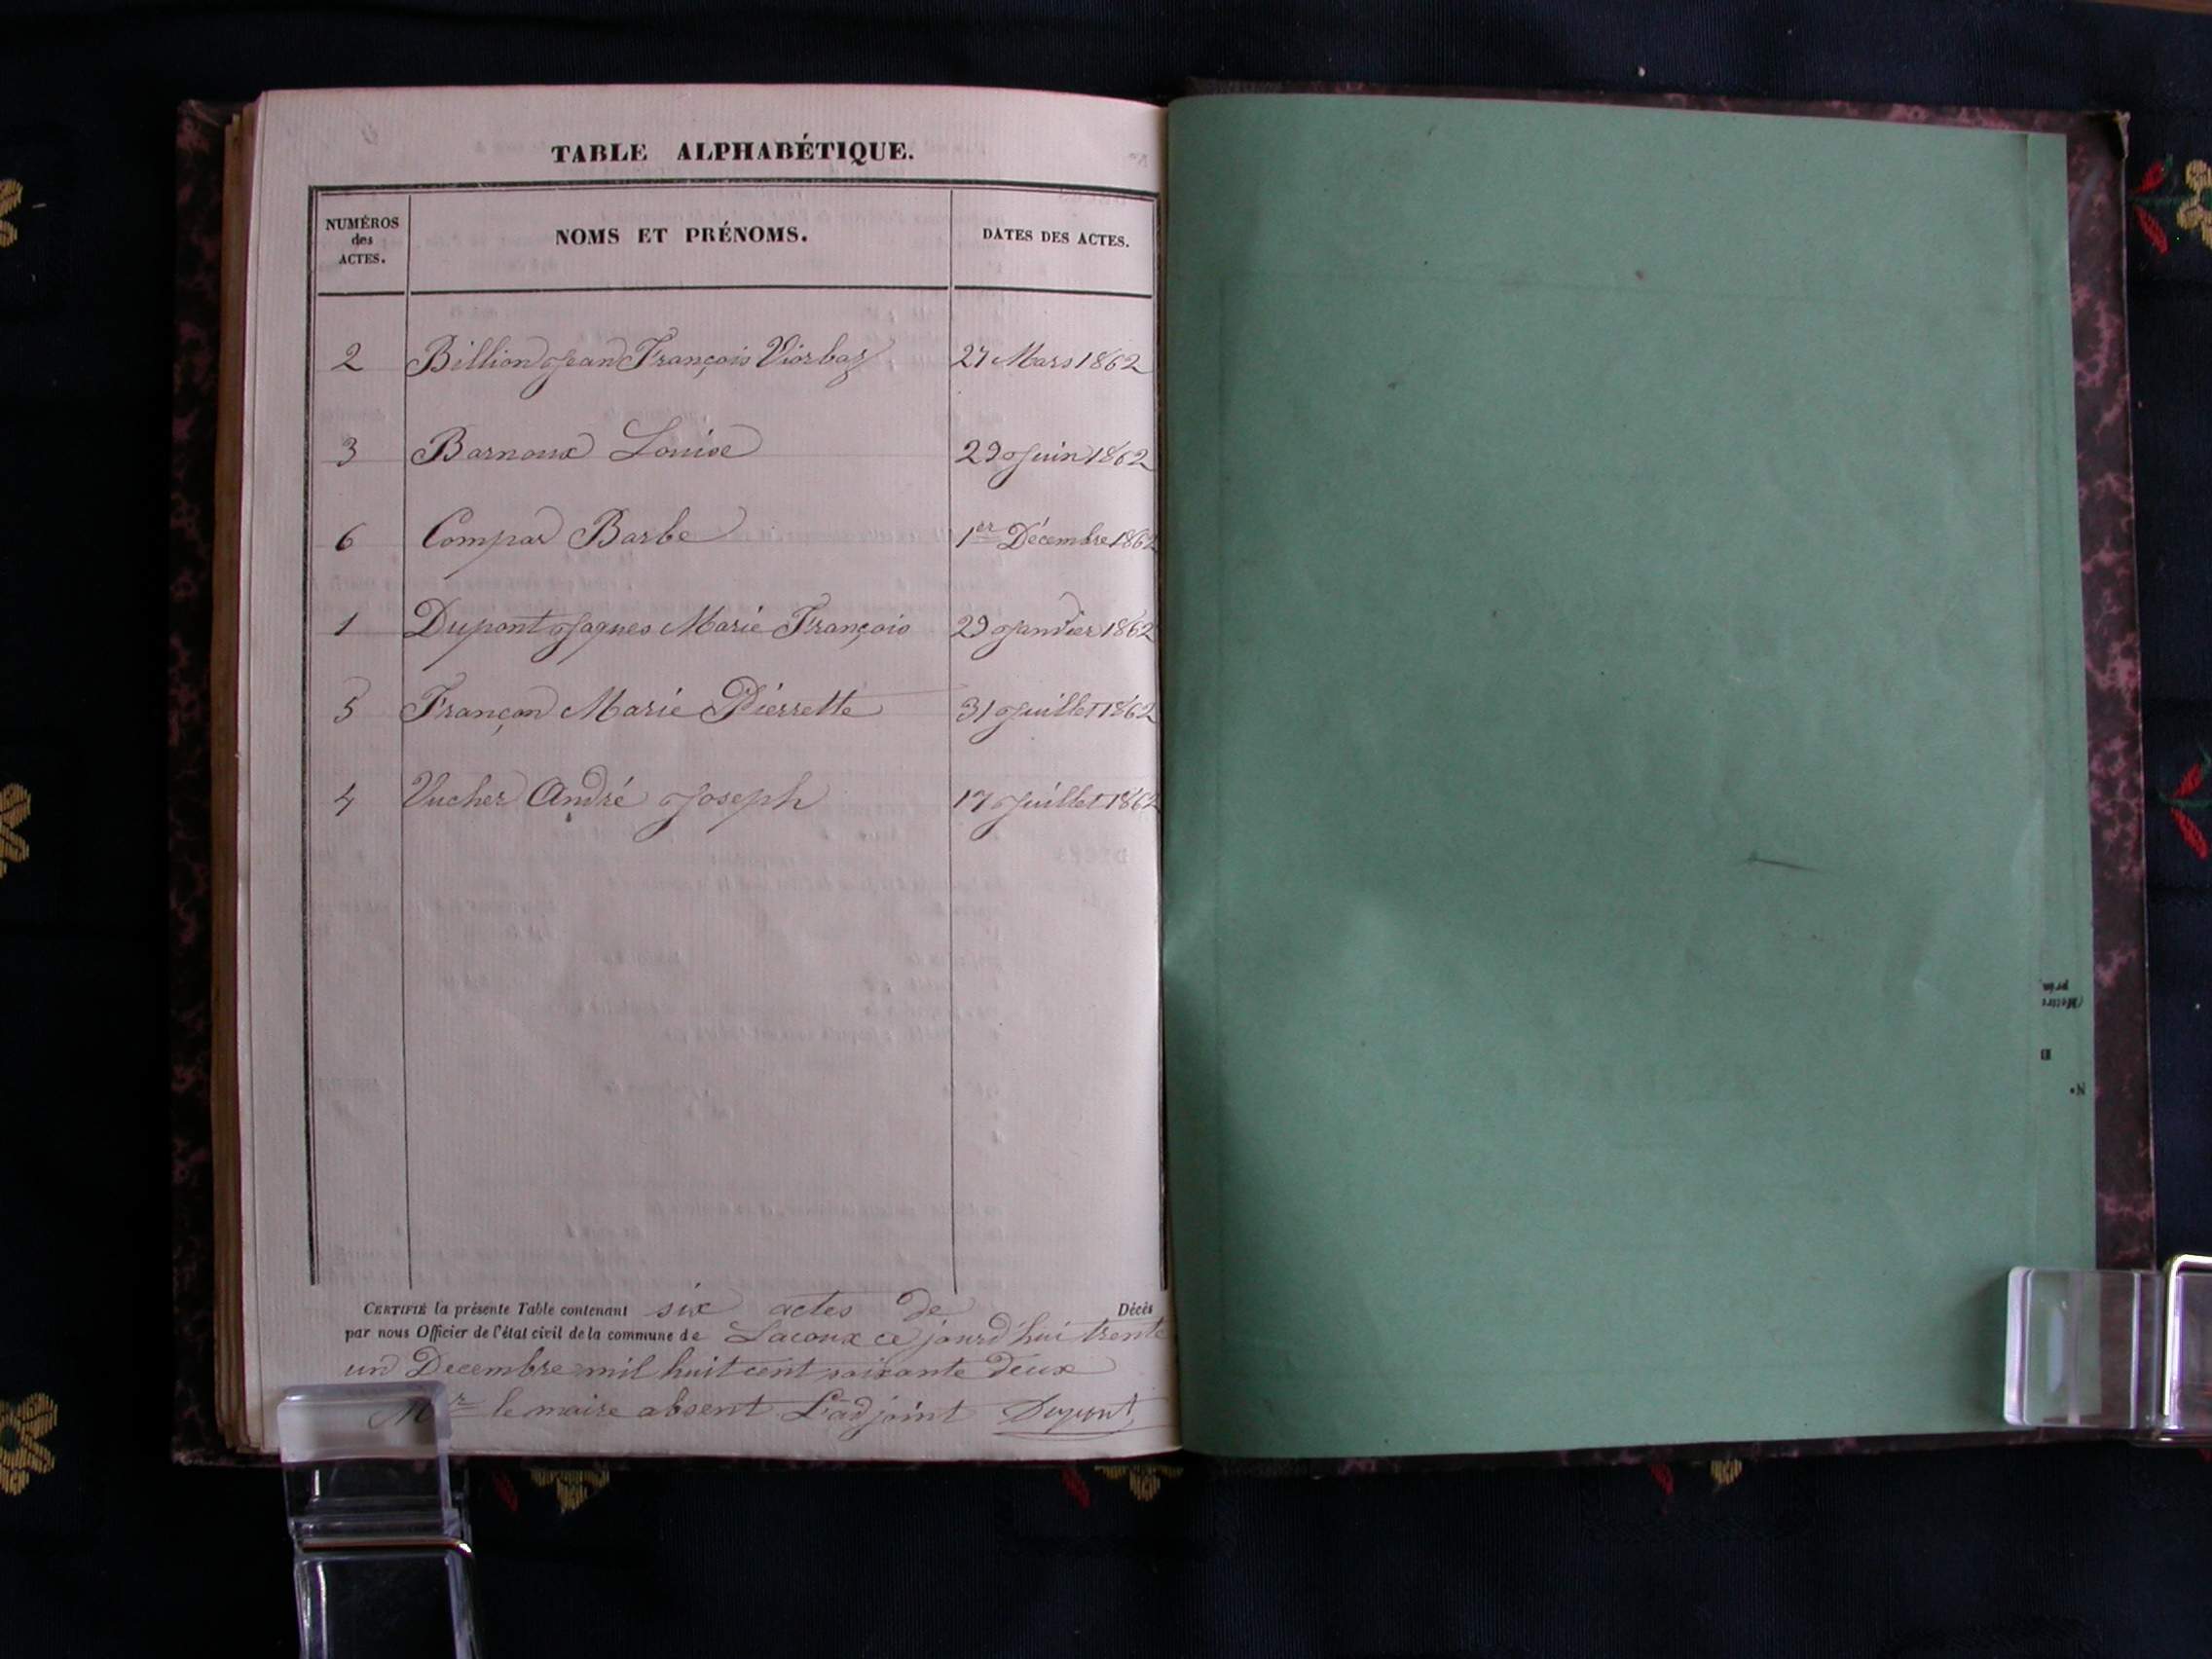 TABLE ALPHABÉTIQUE.
NUMÉROS des ACTES. NOMS ET PRÉNOMS. DATES DES ACTES.
2 Billion Jean François Viorbaz 27 Mars 1862
3 Barnoux Louise 29 Juin 1862
6 Compar Barbe 1er Décembre 1862
1 Dupont Jaques Marie François 29 Janvier 1862
5 Françon Marie Pierrette 31 Juillet 1862
4 Vucher André Joseph 17 Juillet 1862
CERTIFIÉ la présente Table contenant six actes de Décès
par nous Officier de l'état civil de la commune de Lacoux ce jourd'hui trente
un Decembre mil huit cent soixante deux
Mr le maire absent L'adjoint Dupont
(Mettre
prén
N°